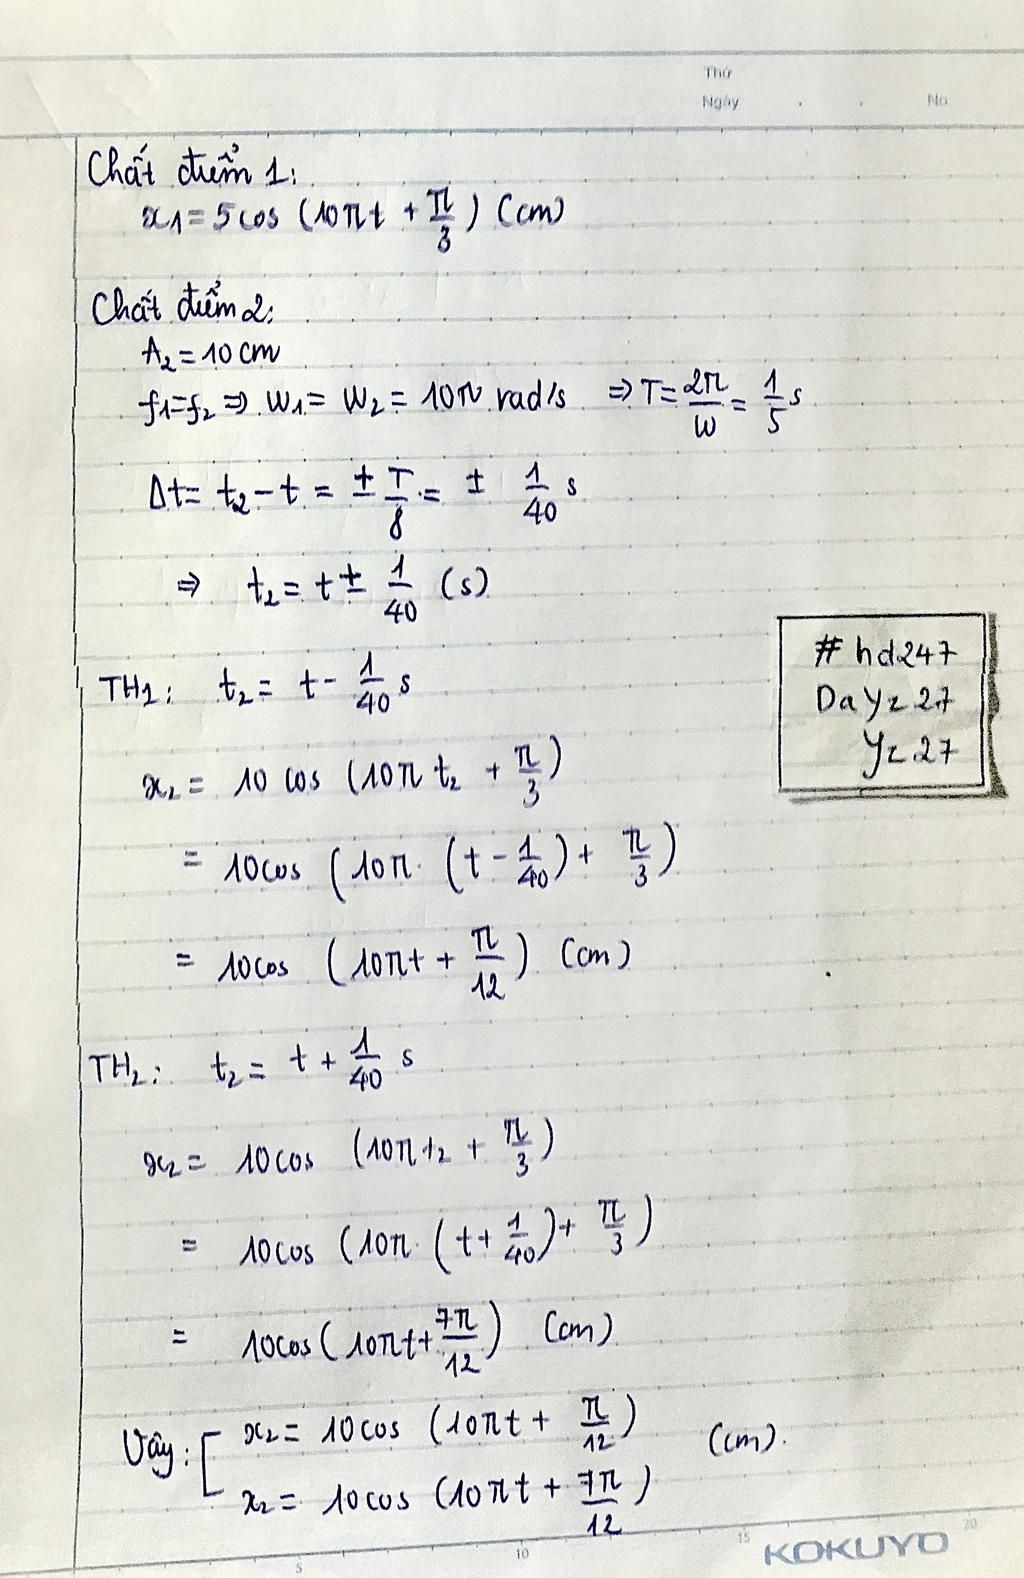 Thứ
Ngày . . No
Chất điểm 1:
x₁ = 5 cos (10πt + π/3) (cm)
Chất điểm 2:
A₂ = 10 cm
f₁ = f₂ ⇒ W₁ = W₂ = 10π rad/s ⇒ T = 2π/W = 1/5 s
Δt = t₂ - t = ± T/8 = ± 1/40 s
⇒ t₂ = t ± 1/40 (s)
TH1: t₂ = t - 1/40 s
# hd247
DaYz27
Yz27
x₂ = 10 cos (10π t₂ + π/3)
= 10cos (10π. (t - 1/40) + π/3)
= 10cos (10πt + π/12) (cm)
TH₂: t₂ = t + 1/40 s
x₂ = 10cos (10πt₂ + π/3)
= 10cos (10π. (t + 1/40) + π/3)
= 10cos (10πt + 7π/12) (cm)
Vậy: [ x₂ = 10cos (10πt + π/12)
x₂ = 10cos (10πt + 7π/12) (cm).
5 10 15 20
KOKUYO